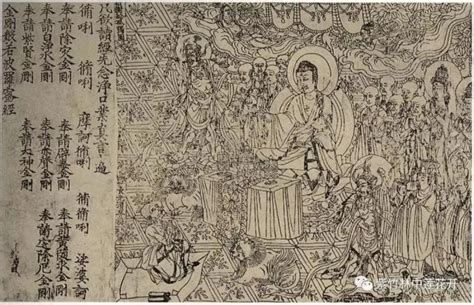 凡欲讀經先念淨口業真言一遍
脩唎 脩唎 摩訶脩唎 脩脩唎 娑婆訶
奉請除災金剛 奉請辟毒金剛 奉請黃隨求金剛
奉請白淨水金剛 奉請赤聲金剛 奉請定除厄金剛
奉請紫賢金剛 奉請大神金剛
金剛般若波羅蜜經
紫竹林中莲花开